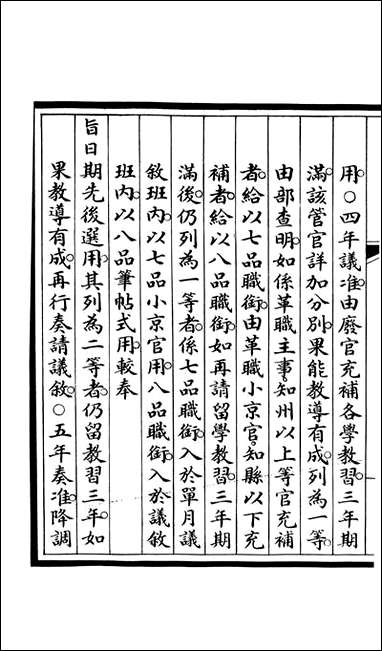 用○四年議准由廢官充補各學教習三年期
滿該管官詳加分別果能教導有成列為一等
由部查明如係革職主事知州以上等官充補
者給以七品職銜由革職小京官知縣以下充
補者給以八品職銜如再請留學教習三年期
滿後仍列為一等者係七品職銜入於單月議
敘班內以七品小京官用八品職銜入於議敘
班內以八品筆帖式用較奉
旨日期先後選用其列為二等者仍留教習三年如
果教導有成再行奏請議敘○五年奏准降調